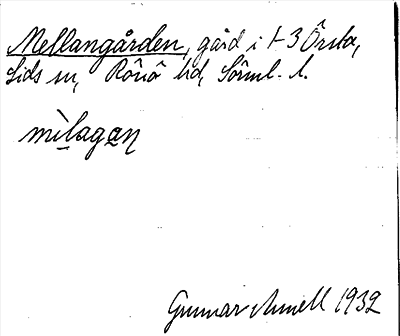 Mellangården, gård i 1-3 Örsta,
Lids sn, Rönö hd, Sörml. l.
mìlagaŋ
Gunnar Amell 1932